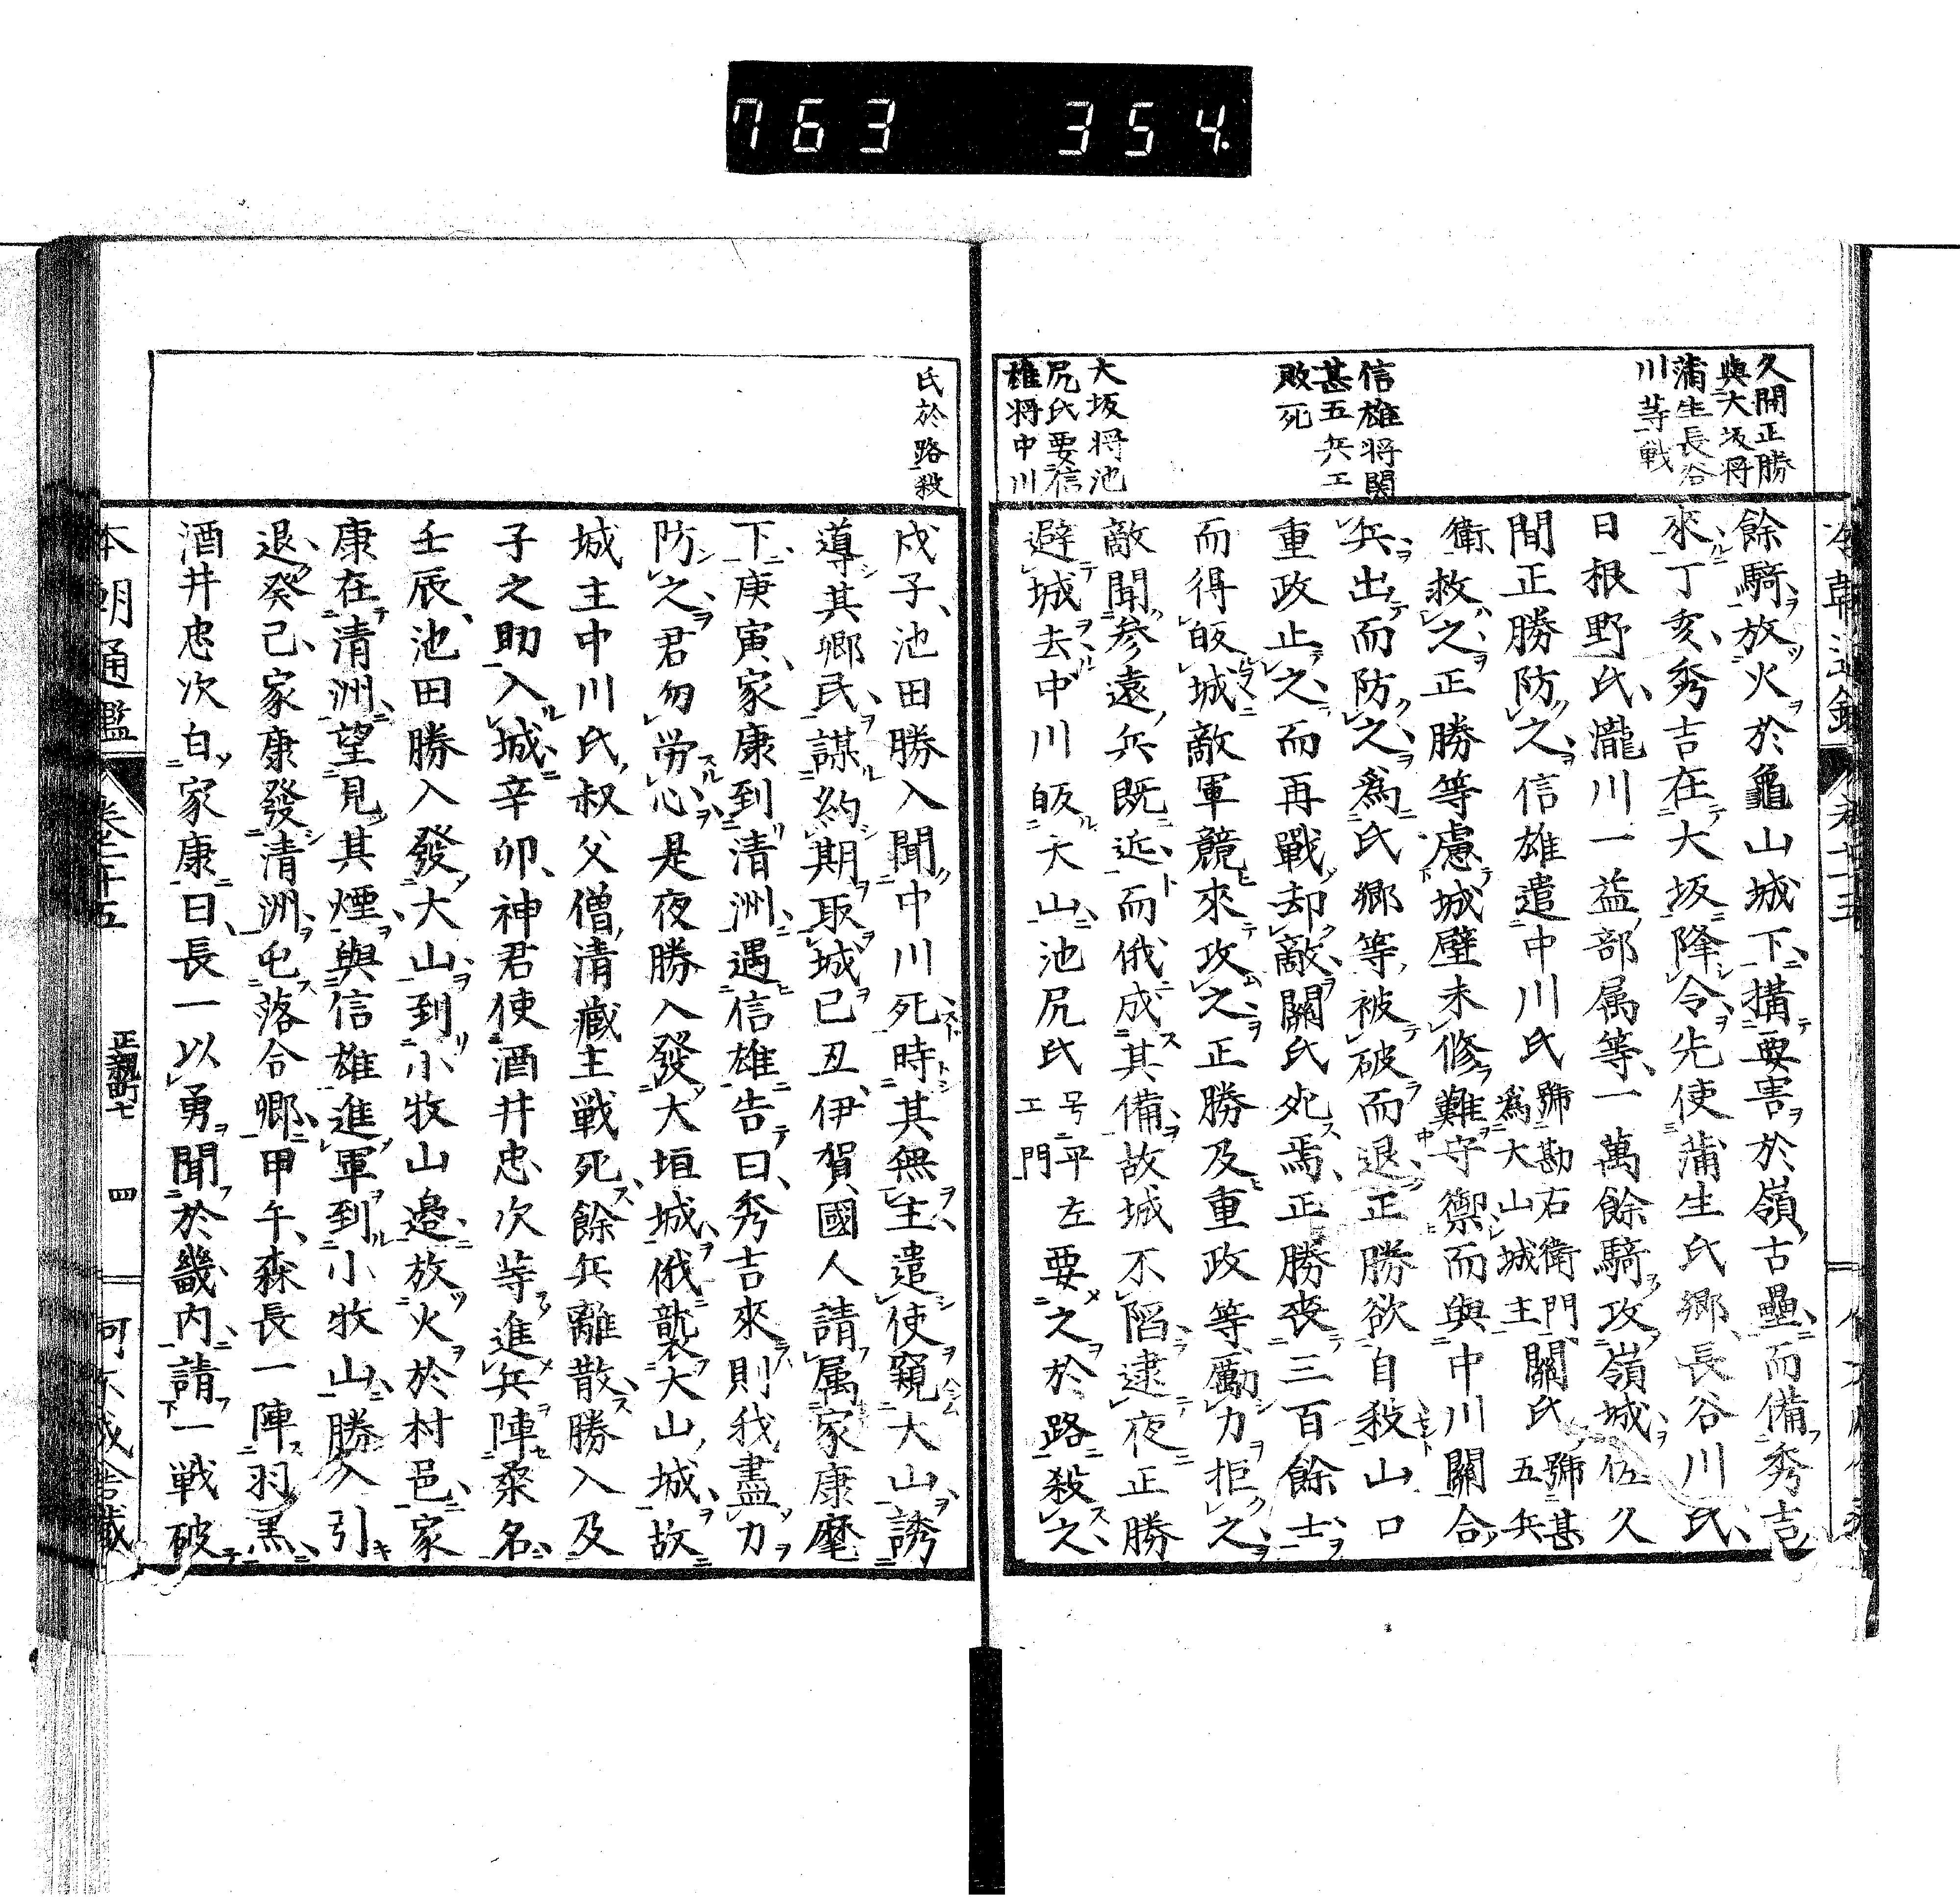 763 354
久間正勝
與大坂将
蒲生長谷
川等戦
信雄将関
甚五兵エ
敗死
大坂将池
尻氏要信
雄将中川
餘騎放火於龜山城下搆要害於嶺古壘而備秀吉
來丁亥秀吉在大坂降令先使蒲生氏郷長谷川氏
日根野氏瀧川一益部属等一萬餘騎攻嶺城佐久
間正勝防之信雄遣中川氏號勘右衛門為大山城主關氏號甚五兵
衛救之正勝等慮城壁未修難守禦而與中川關合
兵出而防之為氏郷等被破而退正勝欲自殺山口
重政止之而再戰却敵關氏死焉正勝喪三百餘士
而得皈城敵軍競來攻之正勝及重政等勵力拒之
敵聞参遠兵既近而俄成其備故城不陷逮夜正勝
避城去中川皈大山池尻氏号平左エ門要之於路殺之
氏於路殺
戊子池田勝入聞中川死時其無主遣使窺大山誘
導其郷民謀約期取城已丑伊賀國人請属家康麾
下庚寅家康到清洲遇信雄告曰秀吉來則我盡力
防之君勿労心是夜勝入發大垣城俄襲大山城故
城主中川氏叔父僧清藏主戦死餘兵離散勝入及
子之助入城辛卯神君使酒井忠次等進兵陣桑名
壬辰池田勝入發大山到小牧山邉放火於村邑家
康在清洲望見其煙與信雄進軍到小牧山勝入引
退癸己家康發清洲屯落合郷甲午森長一陣羽黒
酒井忠次白家康曰長一以勇聞於畿内請一戦破
本朝通鑑 卷 十五 正親町七 四